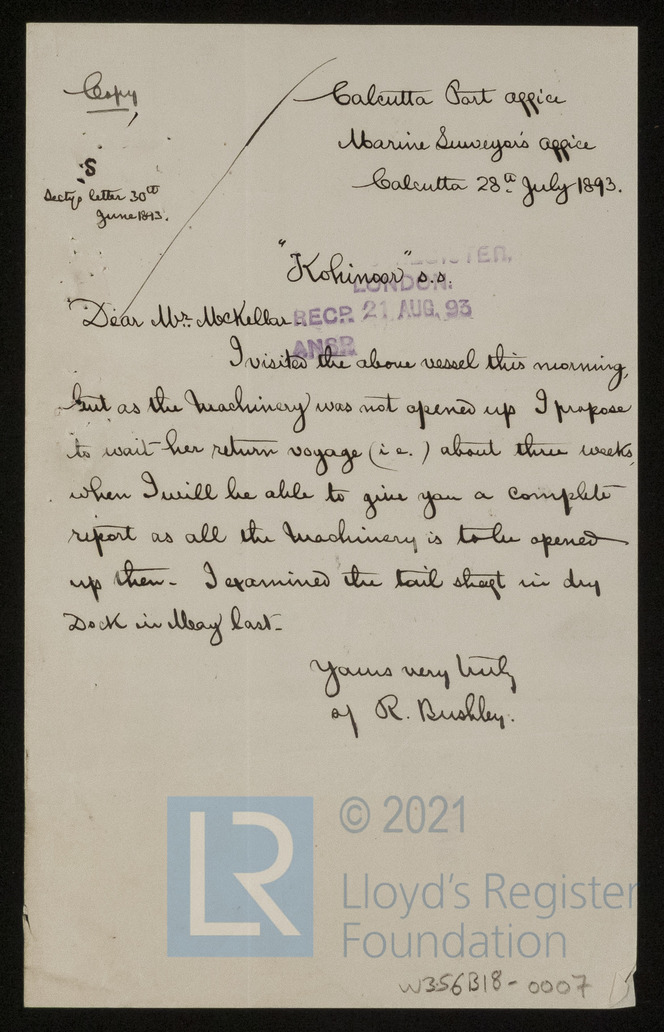 Copy
S
Secty's letter 30th
June 1893.
Calcutta Port office
Marine Surveyor's office
Calcutta 28th July 1893.
"Kohinoor" s.s.
REGISTER,
LONDON.
RECD. 21 AUG. 93
ANSR
Dear Mr. McKellar
I visited the above vessel this morning,
but as the Machinery was not opened up I propose
to wait her return voyage (i.e.) about three weeks,
when I will be able to give you a complete
report as all the Machinery is to be opened
up then - I examined the tail shaft in dry
Dock in May last -
Yours very truly
R. Bushley.
LR
© 2021
Lloyd's Register
Foundation
W356B18-0007